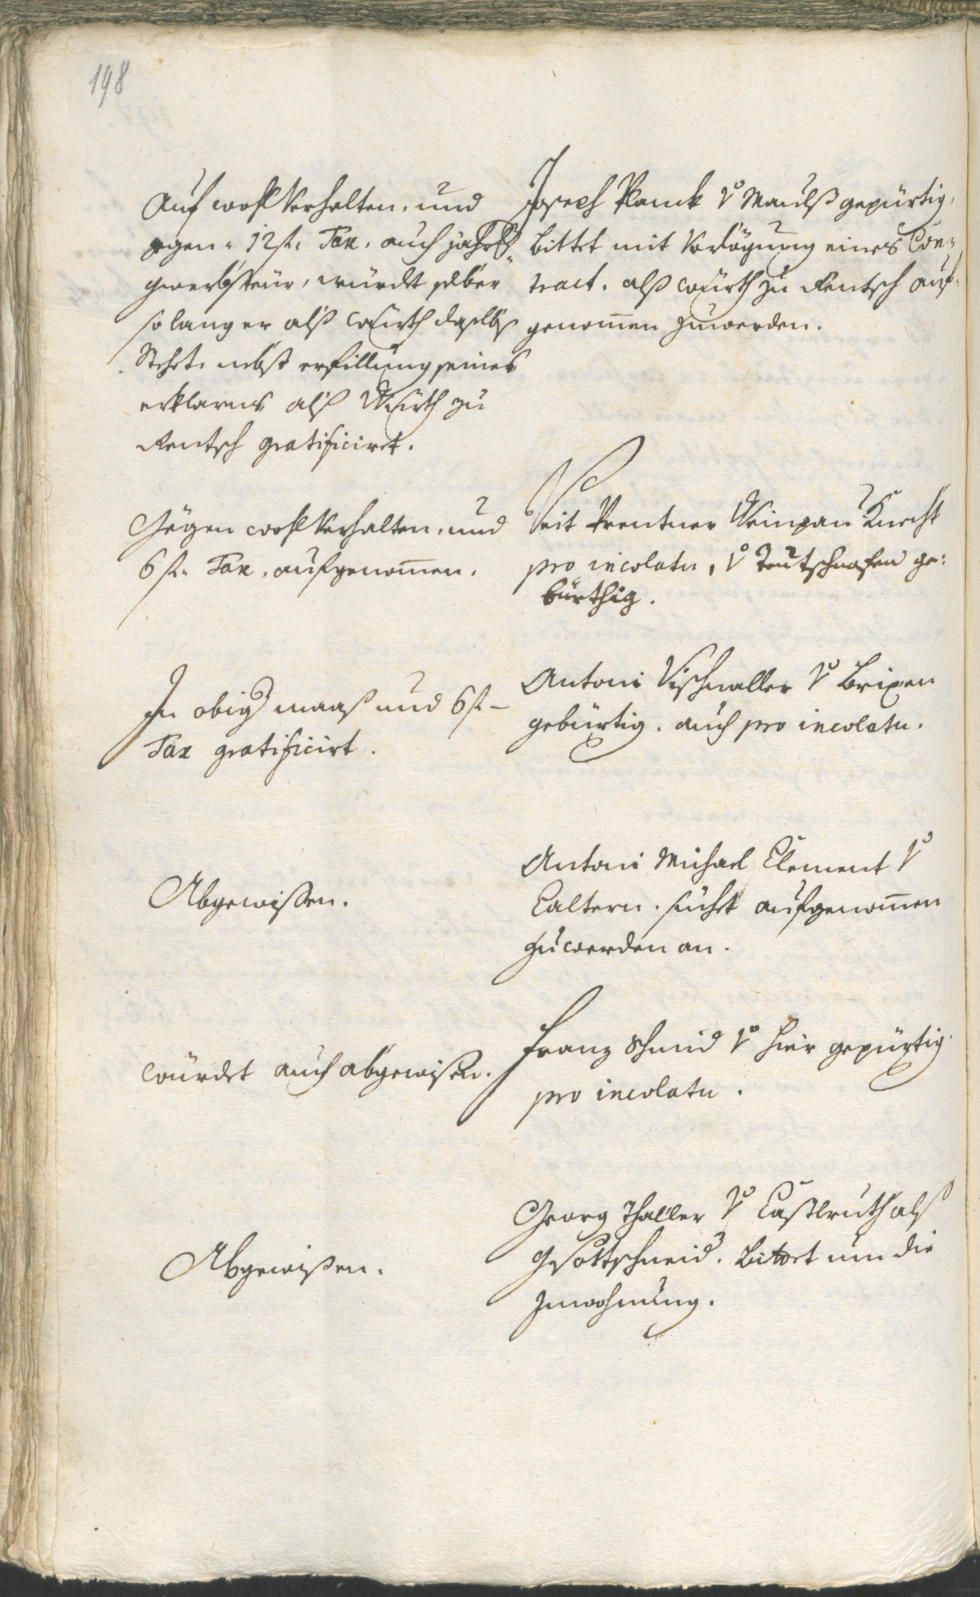 198
Auf wohl verhalten, und
gegen 12 f. Tax. auch jährl:
gwerbsteur, würdet selber
solang er alß Würth daselbst
Stehet. nebst erfillung seines
erklarens alß Würth zu
Rentsch gratificiret.
Joseph Planck v: Maulß gepürtig,
bittet mit Vorlögung eines Con¬
tract. alß Würth zu Rentsch auf¬
genomen zuwerden.
Gegen wohl verhalten, und
6 f. Tax. aufgenomen.
Veit Prentner Weinpau Knecht
pro incolatu, v: Teutschnofen ge:
bürthig.
In obig maaß und 6 f
Tax gratificirt.
Antoni Vischnaller v: Brixen
gebürtig. auch pro incolatu.
Abgewissen.
Antoni Michael Clement v:
Caltern. sucht aufgenomen
zuwerden an.
würdet auch abgewisen.
Franz Schmid v: hier gepürtig.
pro incolatu.
Abgewissen.
Georg Thaller v: Castlruth alß
Gsottschneid. bittet um die
Inwohnung.